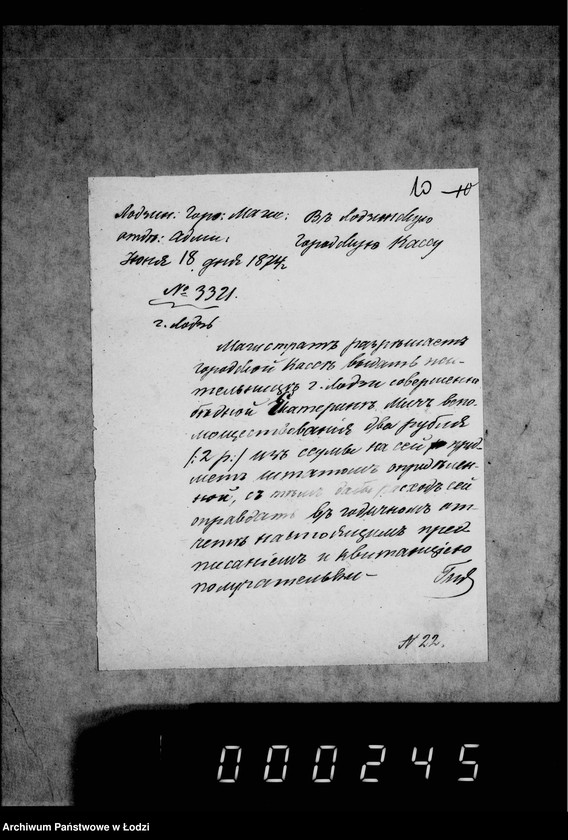 10 10
Лодзин: Горо: Маги: Въ Лодзинскую
отдѣ: Адми: Городскую Кассу
Іюня 18 дня 1874 г.
№ 3321.
г. Лодзь
Магистратъ разрѣшаетъ
городской Кассѣ выдать жи-
тельницѣ г. Лодзи совершенно
бѣдной Екатеринѣ Мичъ вспо-
моществованія два рубля
/: 2 р :/ изъ суммы на сей пред-
метъ штатомъ опредѣлен-
ной, съ тѣмъ дабы расходъ сей
оправдать въ годичномъ от-
четѣ настоящимъ пред-
писаніемъ и квитанціею
получательни-
N 22.
000245
Archiwum Państwowe w Łodzi